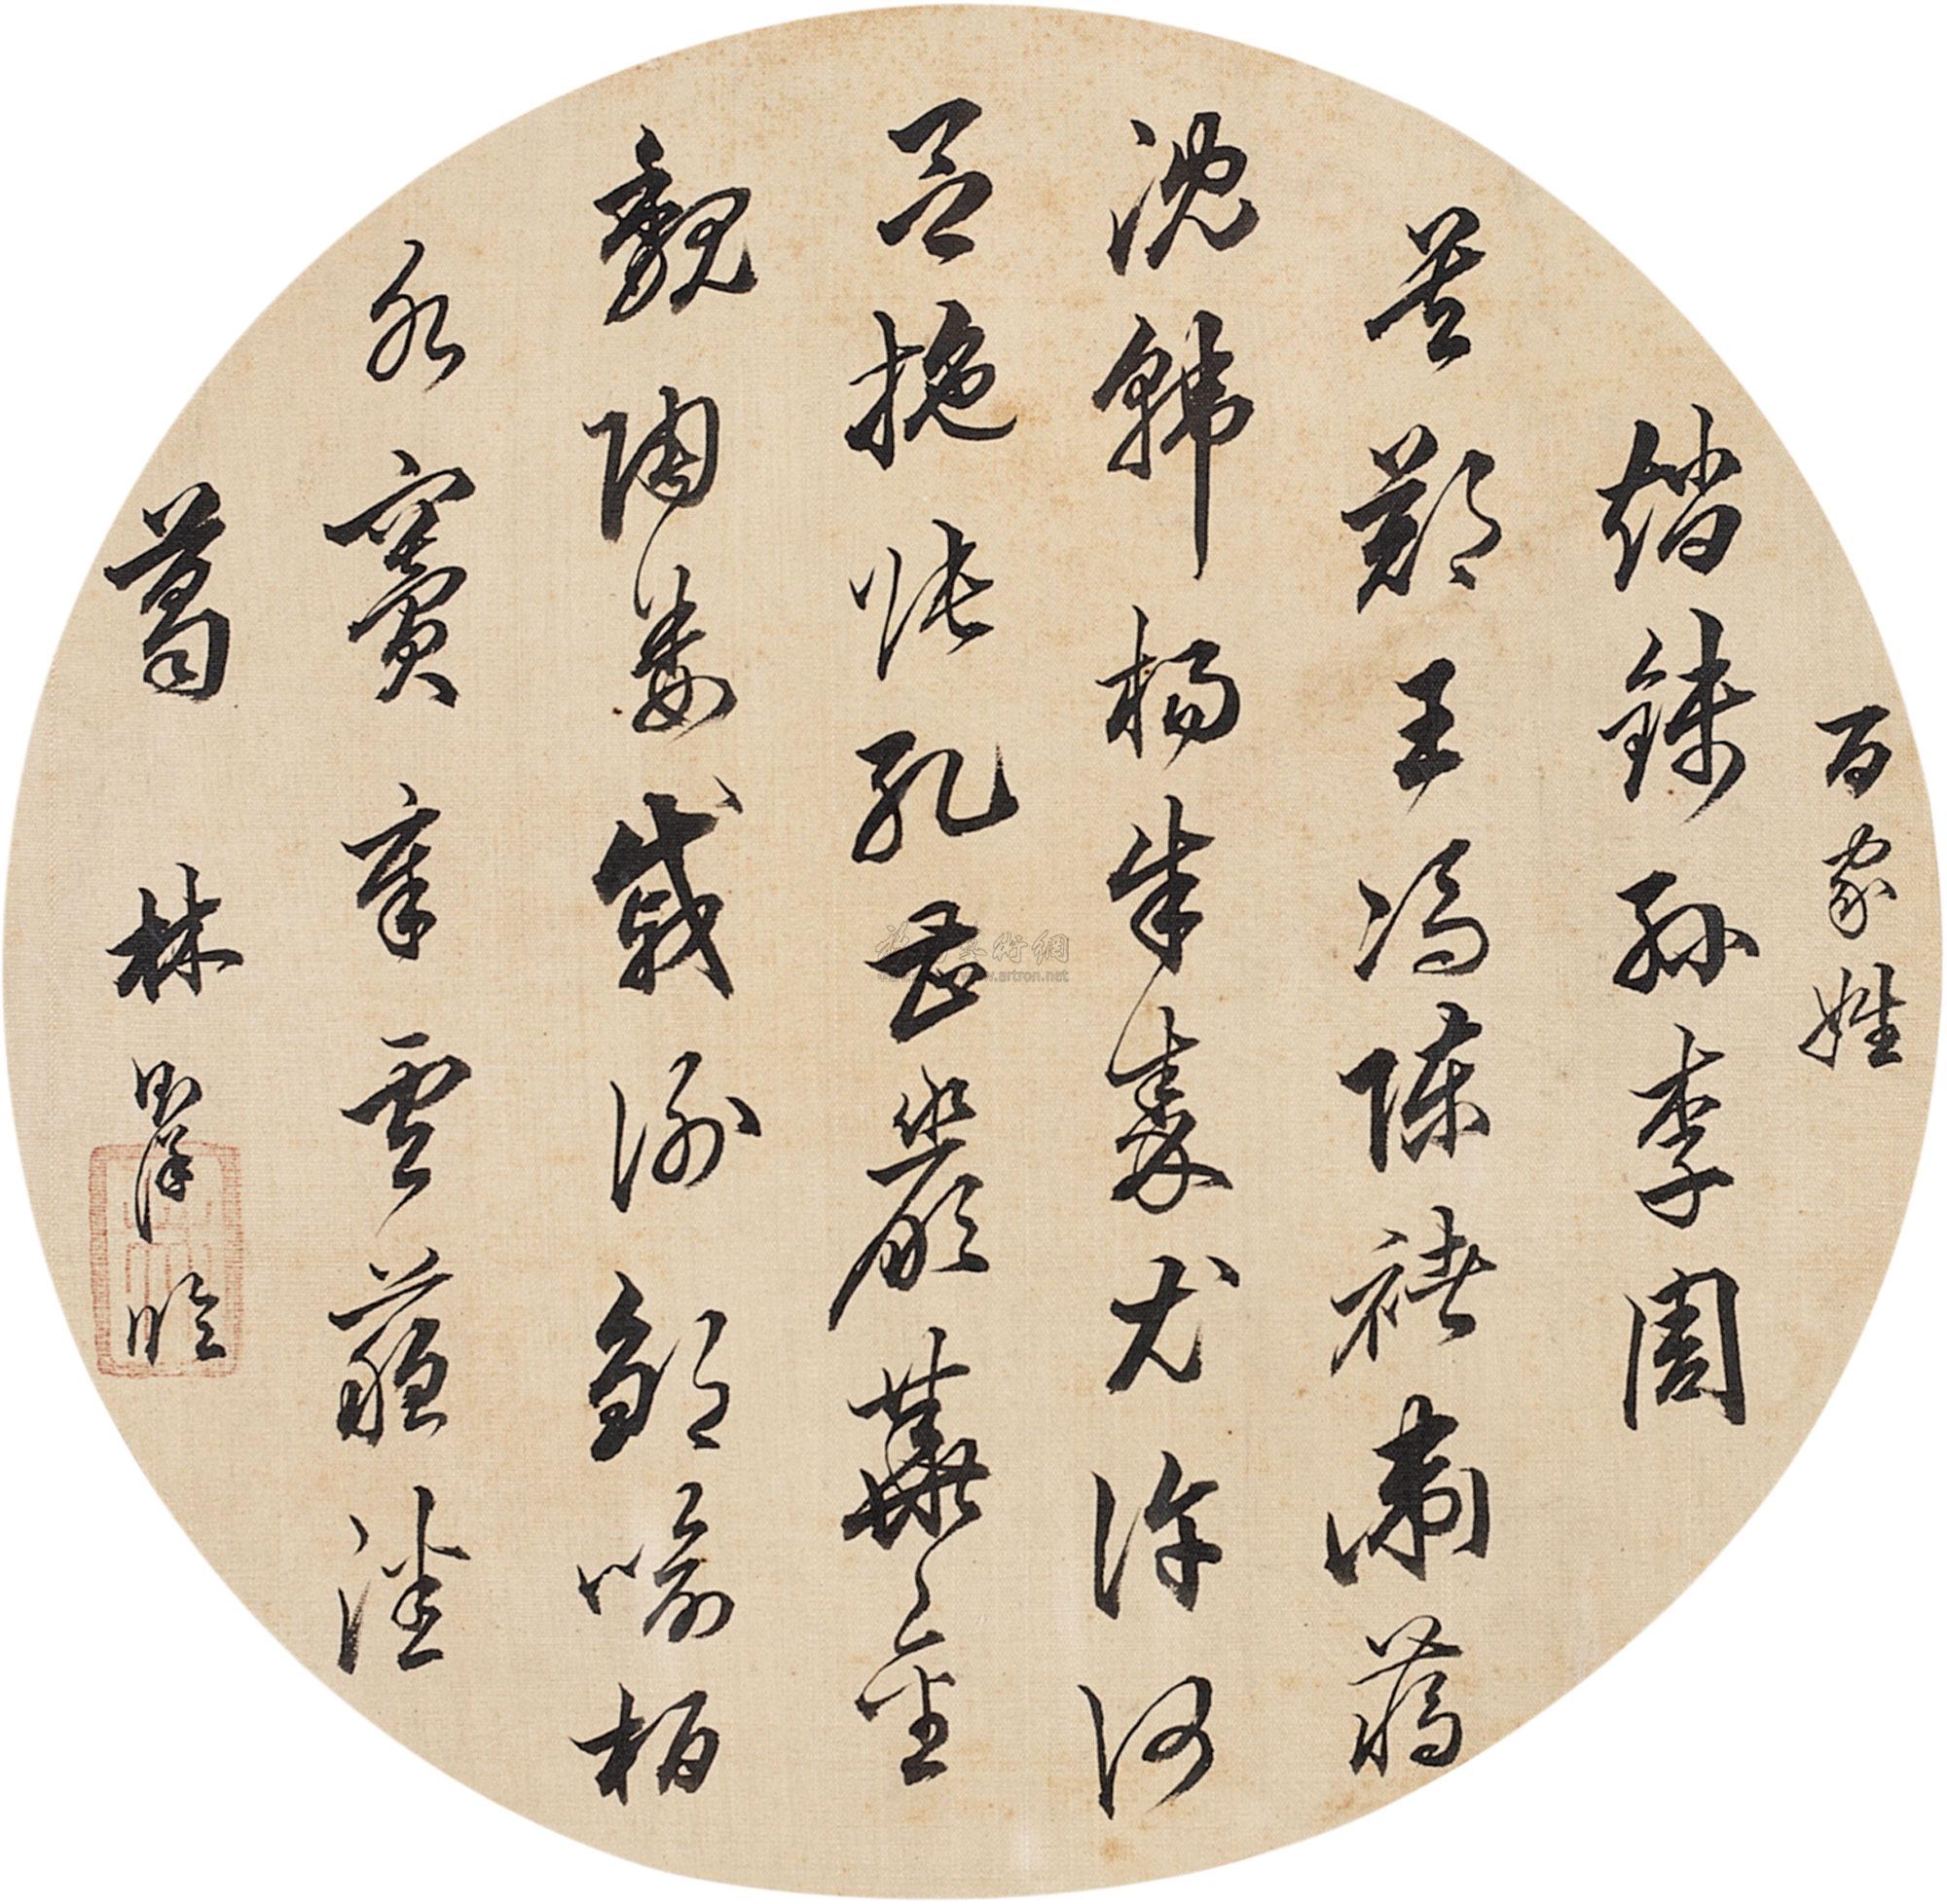 百家姓
趙錢孫李周
吴鄭王馮陳褚衛蔣
沈韓楊朱秦尤許何
吕施張孔曹嚴華金
魏陶姜戚謝鄒喻柏
水竇章雲蘇潘
葛 林
www.artron.net